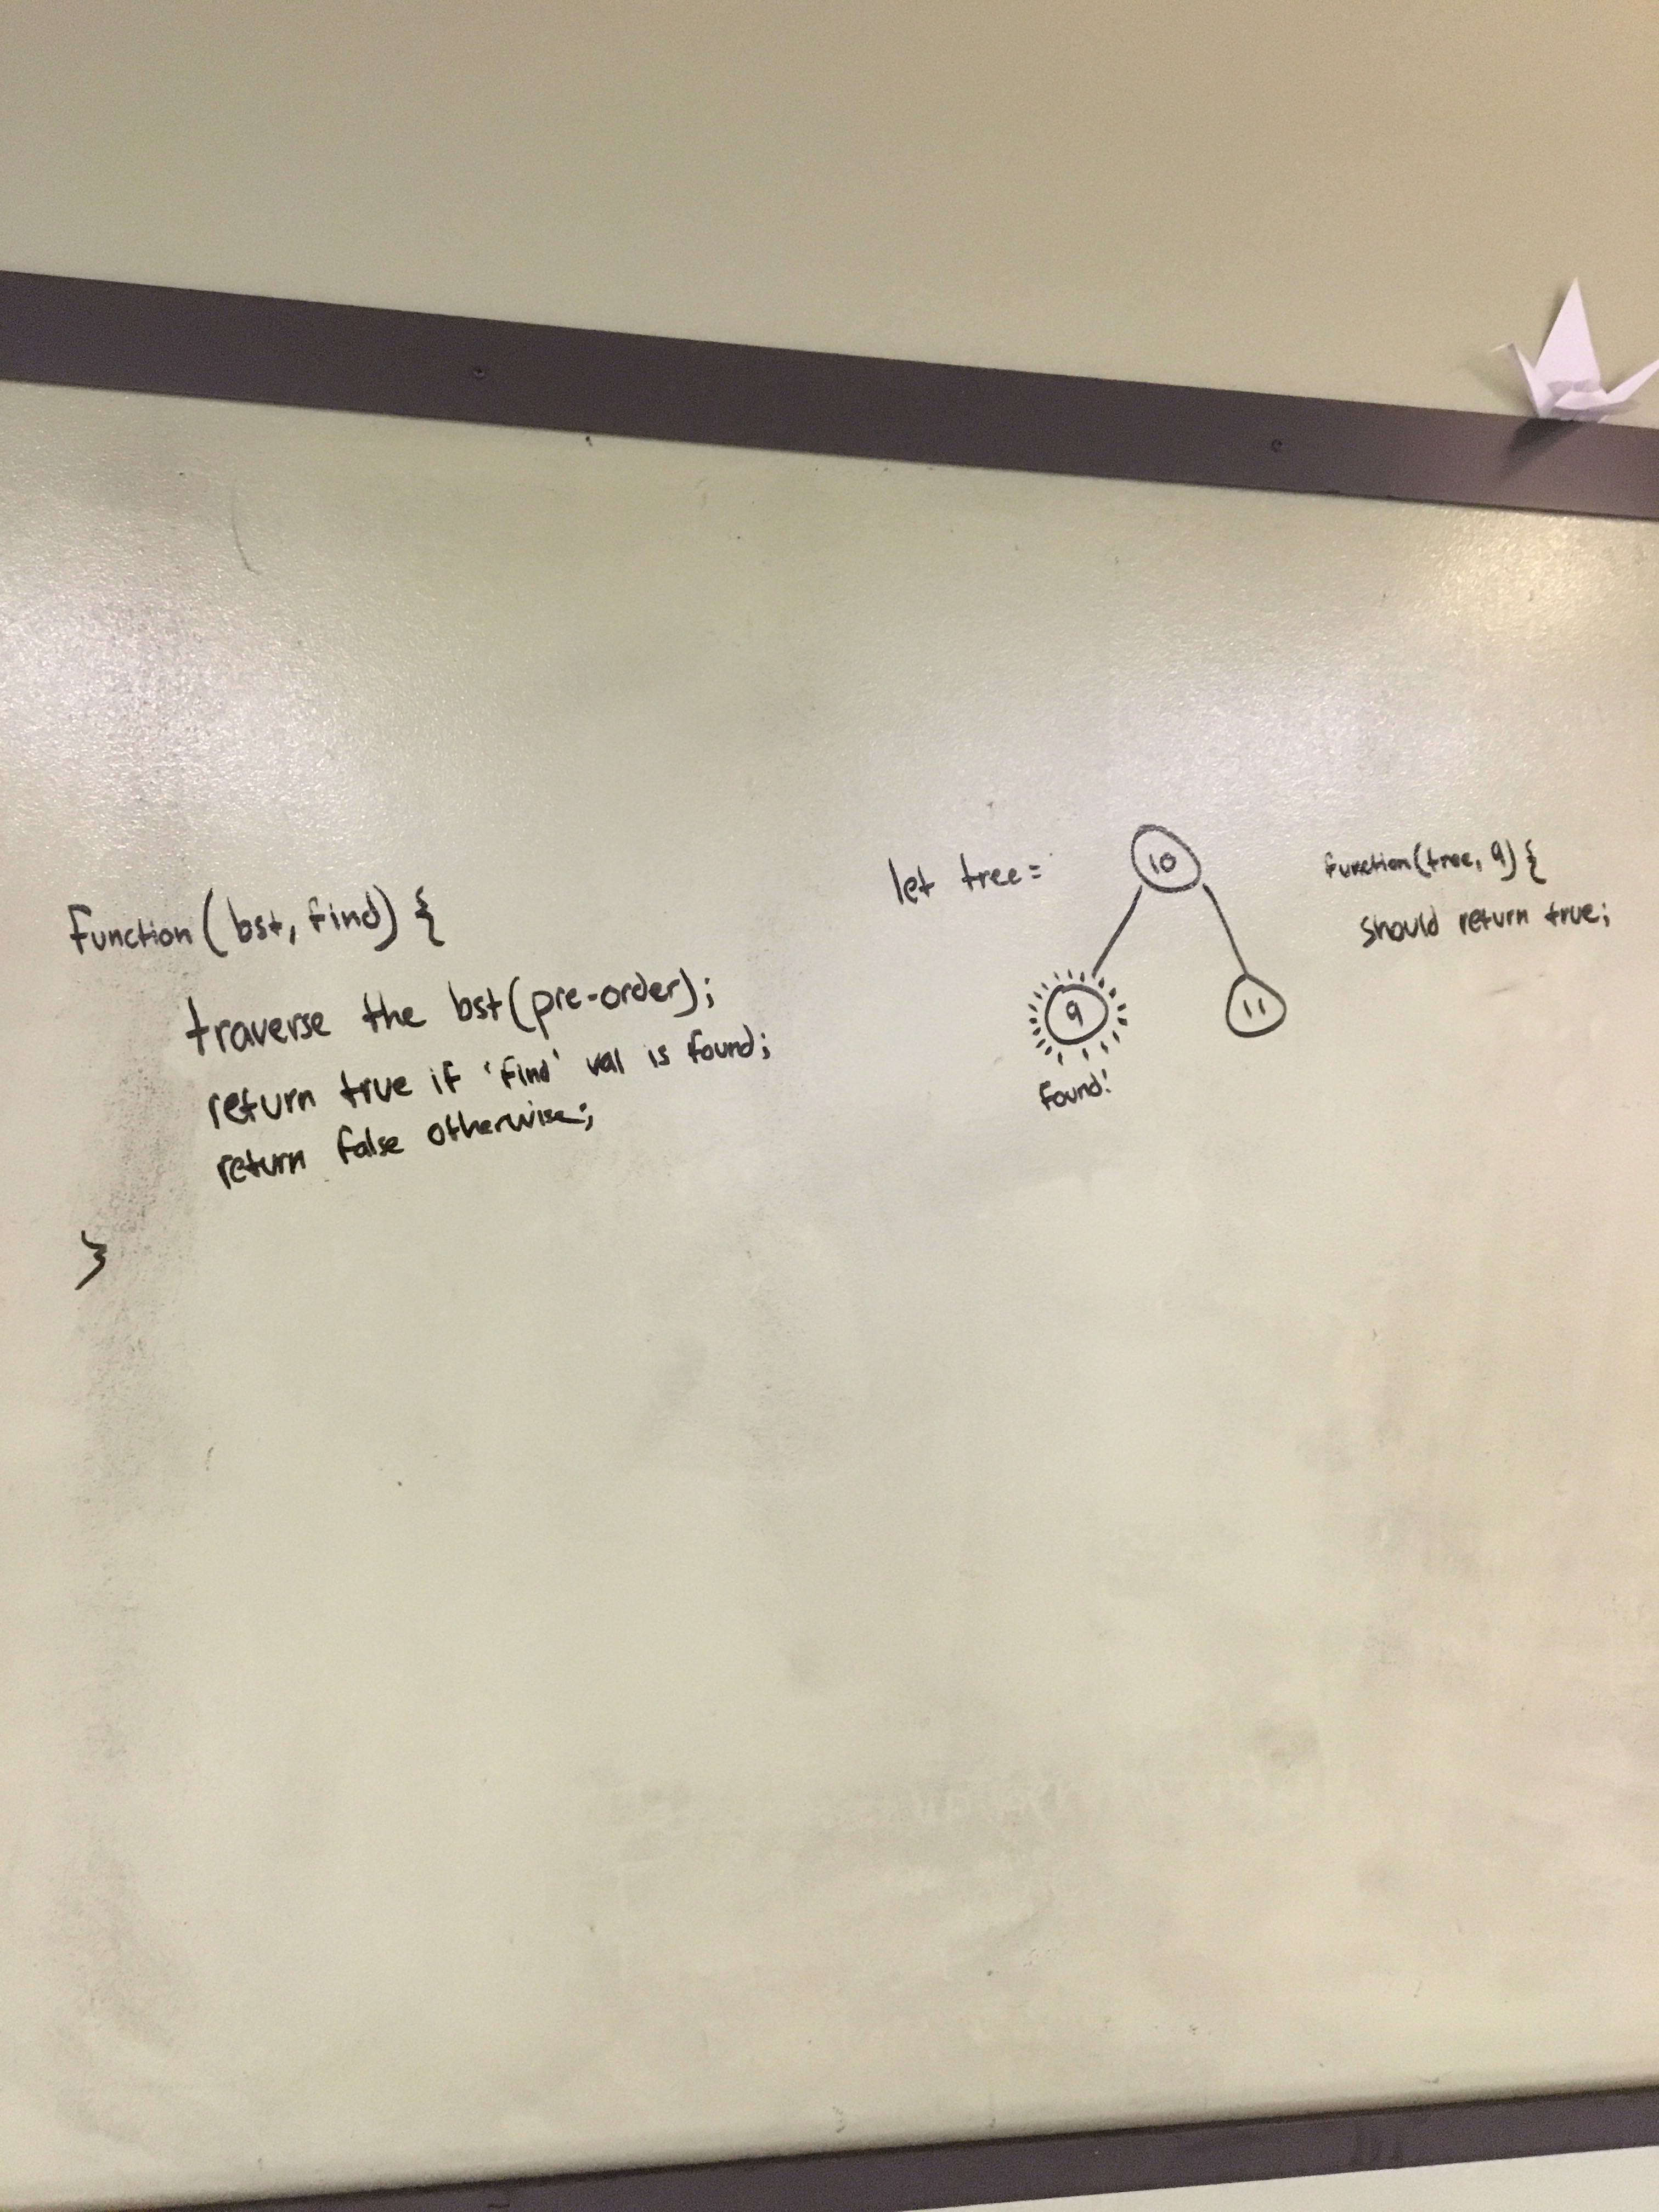 function(bst, find) {
traverse the bst(pre-order);
return true if 'find' val is found;
return false otherwise;
}
let tree =
10
9
11
found!
function(tree, 9) {
should return true;